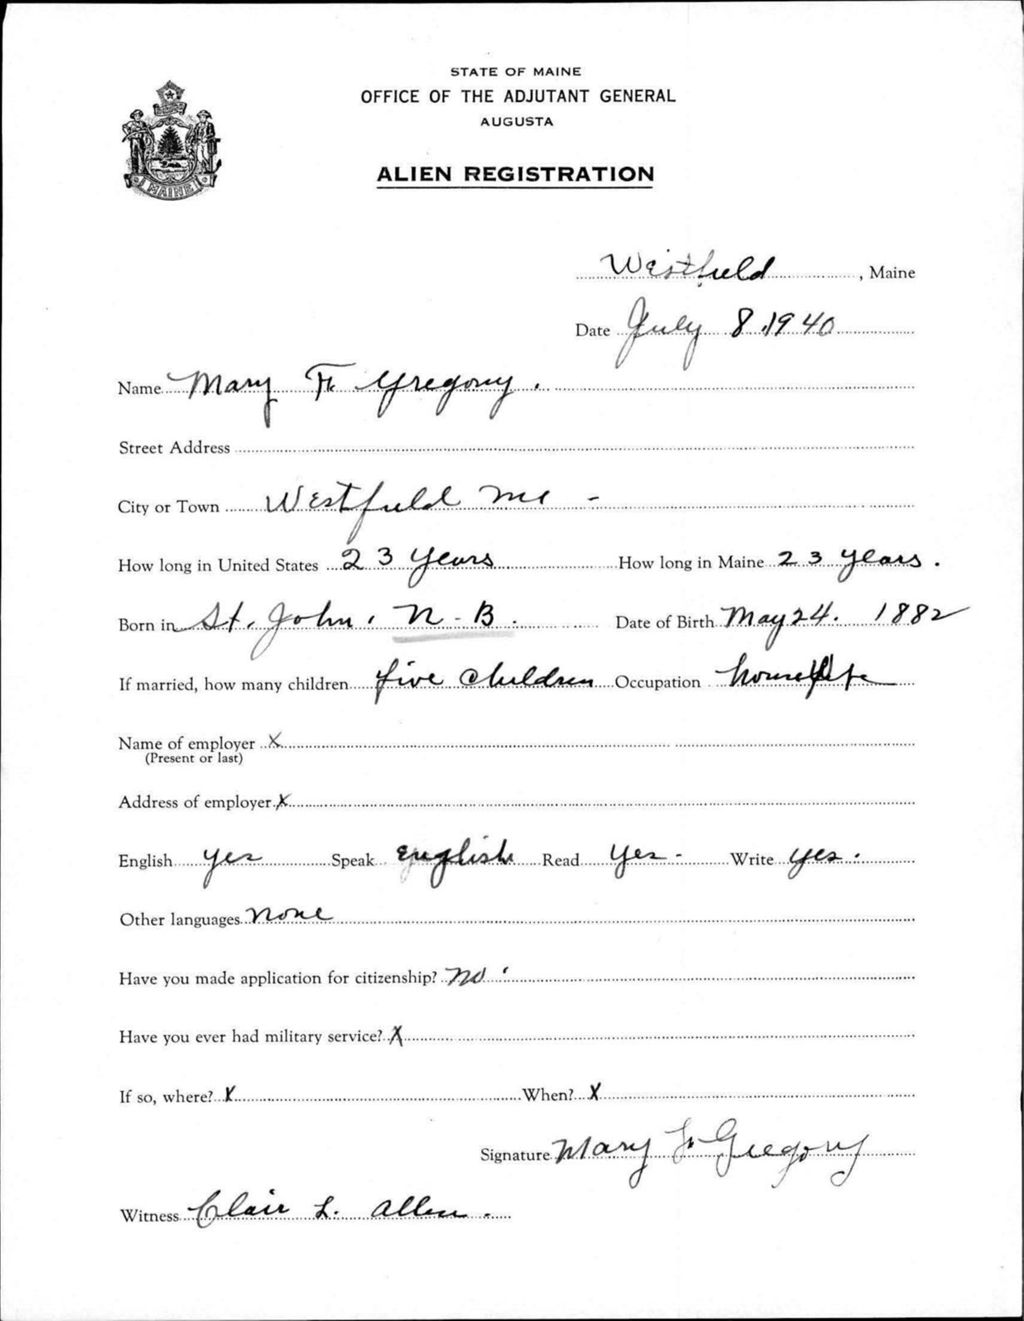 STATE OF MAINE
OFFICE OF THE ADJUTANT GENERAL
AUGUSTA
ALIEN REGISTRATION
MAINE
Westfield, Maine
Date July 8, 1940
Name Mary F. Gregory.
Street Address
City or Town Westfield Me -
How long in United States 23 Years How long in Maine 23 years.
Born in St. John, N-B. Date of Birth May 24. 1882
If married, how many children five children Occupation housewife
Name of employer X
(Present or last)
Address of employer X
English yes Speak English Read yes - Write yes.
Other languages none
Have you made application for citizenship? No.
Have you ever had military service? X
If so, where? X When? X
Signature Mary F. Gregory
Witness Clair L. Allen.